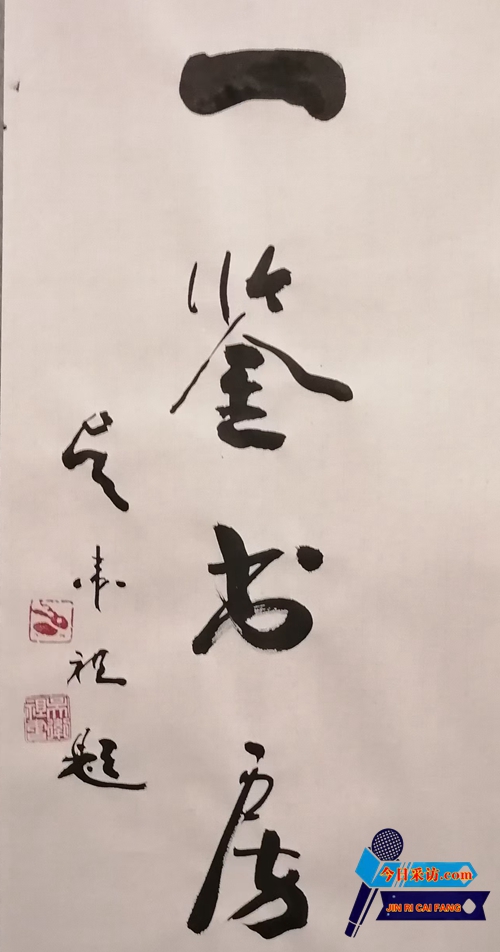 一鉴书房
吴 题
今日采访.com
JIN RI CAI FANG